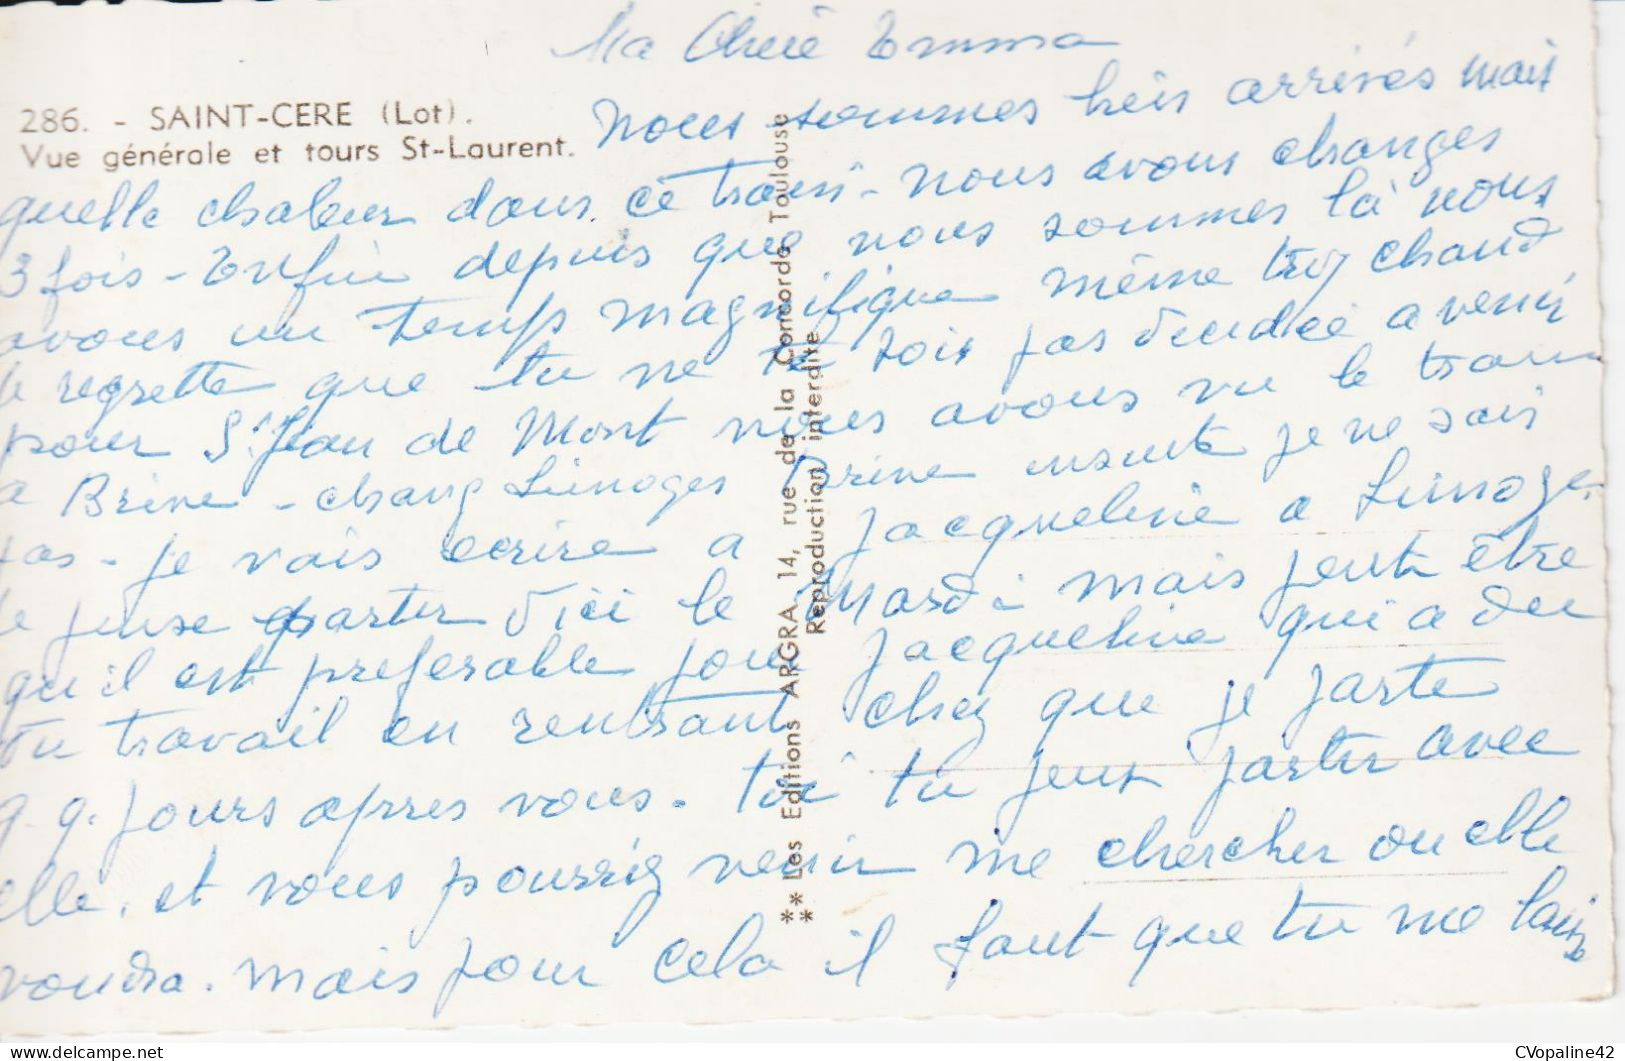 Ma Cherè Emma
286. - SAINT-CERE (Lot).
Vue générale et tours St-Laurent.
nous sommes bèis arrivés mais
quelle chaleur dans ce train - nous avons changes
3 fois - Enfin depuis que nous sommes là nous
avons un temps magnifique même trop chaud
Je regrette que tu ne te sois pas decideè a venir
pour St Jean de Mont nous avons vu le train
a Brive - chang Limoges Brive nsuite je ne sais
pas - je vais ecrire a Jacqueline a Limoges
Je pense partir d'ici le Mardi mais peut être
qu'il est preferable pour Jacqueline qui a du
du travail en rentrant chez que je parte
q.q. jours apres vous. toi tu peux partir avec
elle, et vous pourriez venir me chercher ou elle
voudra. mais pour cela il faut que tu me
** Les Editions ARGRA 14, rue de la Concorde Toulouse
** Reproduction interdite
CVopaline42
delcampe.net